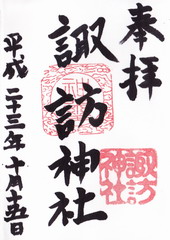 奉拝
諏訪神社
諏訪
神社
平成二十三年十月十五日